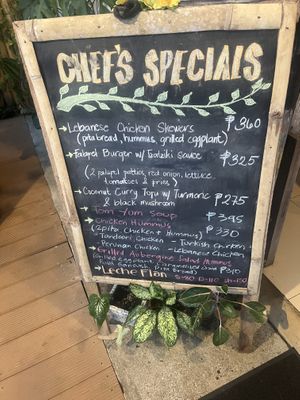 CHEF'S SPECIALS
Lebanese Chicken Skewers ₱360
(pita bread, hummus, grilled eggplant)
Falafel Burger w/ Tzatziki sauce ₱325
(2 falafel patties, red onion, lettuce,
tomatoes & fries)
Coconut Curry Tofu w/ Turmeric ₱275
& black mushroom
Tom Yam Soup ₱395
Chicken Hummus ₱330
(2 pita, Chicken & Hummus)
- Tandoori Chicken - Turkish Chicken
- Peruvian Chicken - Lebanese Chicken
Grilled Aubergine Salad Hummus
₱310
Leche Flan